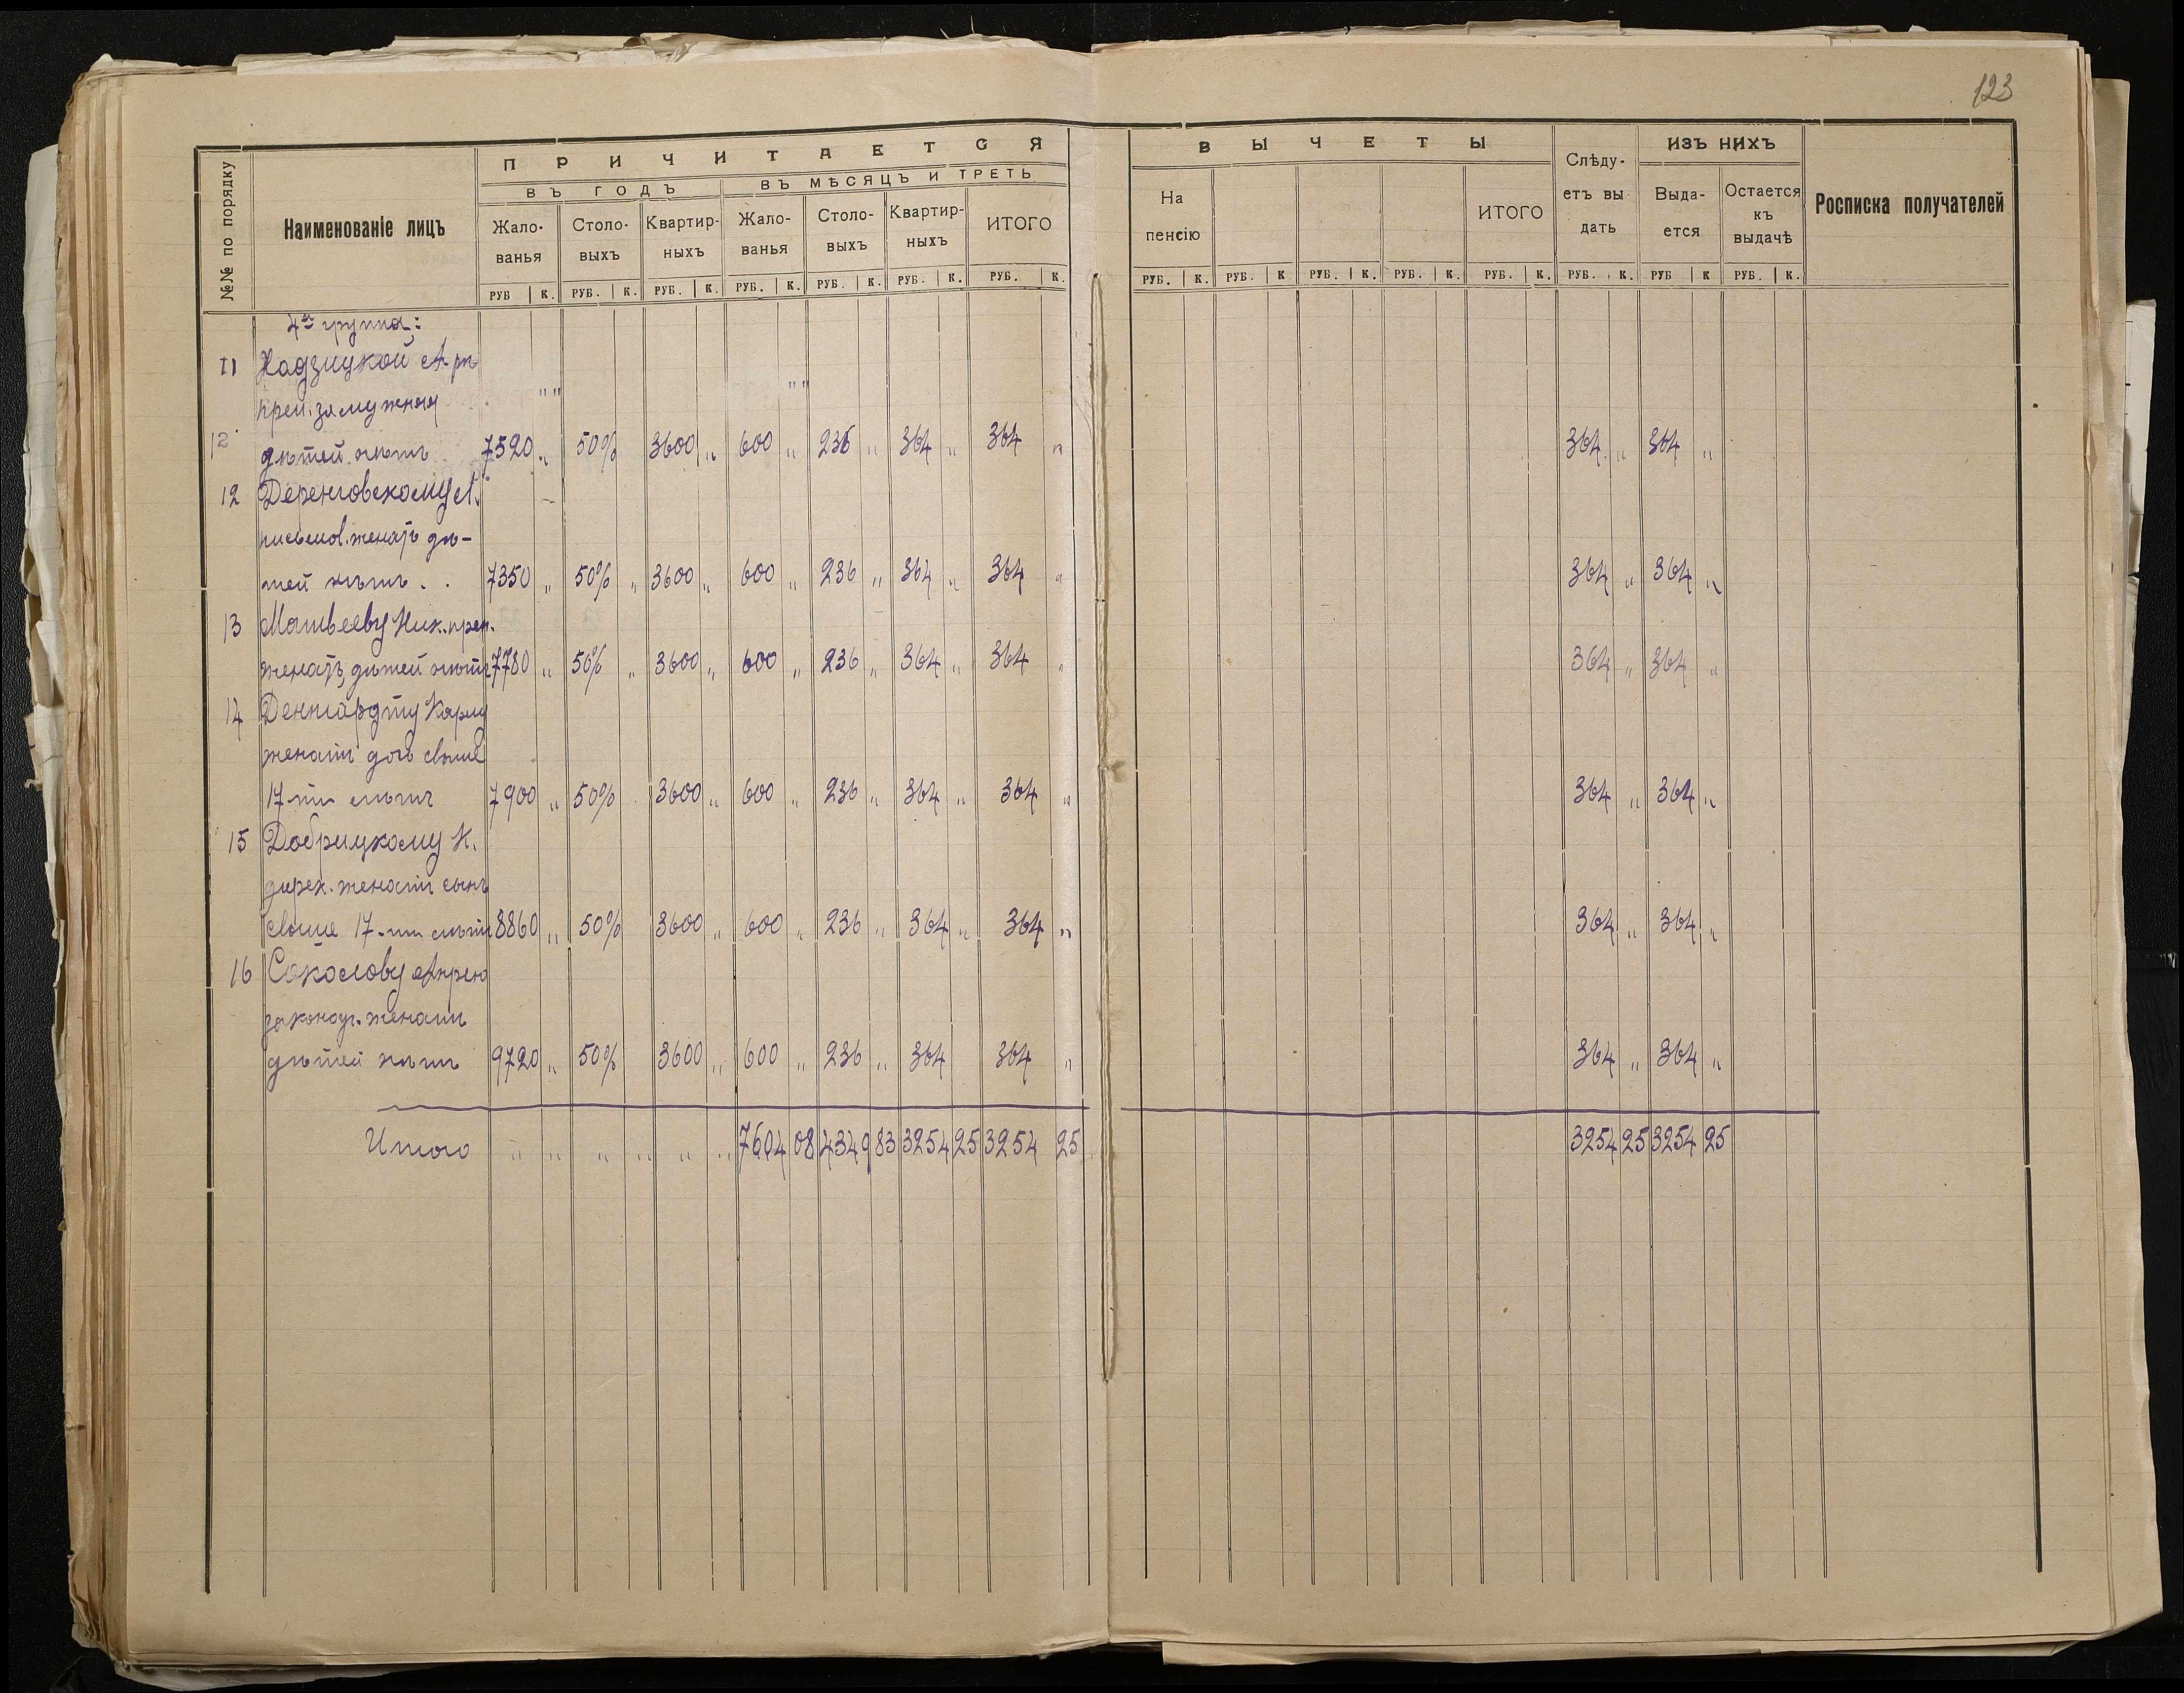 123
П Р И Ч И Т А Е Т С Я
ВЪ ГОДЪ ВЪ МѢСЯЦЪ И ТРЕТЬ
№№ по порядку
Наименованіе лицъ
Жало-ванья Столо-выхъ Квартир-ныхъ Жало-ванья Столо-выхъ Квартир-ныхъ ИТОГО
РУБ К. РУБ. К. РУБ. К. РУБ. К. РУБ. К. РУБ. К. РУБ. К.
В Ы Ч Е Т Ы
На пенсію ИТОГО
Слѣду-етъ вы дать
ИЗЪ НИХЪ
Выда-ется Остается къ выдачѣ
Росписка получателей
РУБ. К. РУБ. К РУБ. К. РУБ. К. РУБ. К. РУБ. К. РУБ К РУБ. К.
4ая группа:
11 Надзицкой А. рп
преп. замужняя " " " "
12 дѣтей нѣтъ 7520 „ 50% 3600 „ 600 „ 236 „ 364 „ 364 „ 364 „ 364 „
12 Деренговскому А.
письмов. женатъ дѣ-
тей нѣтъ . . 7350 „ 50% „ 3600 „ 600 „ 236 „ 364 „ 364 „ 364 „ 364 „
13 Матвееву Ник. преп.
женатъ, дѣтей нѣтъ 7780 „ 50% „ 3600 „ 600 „ 236 „ 364 „ 364 „ 364 „ 364 „
14 Денгардту Карлу
женатъ дочь свыше
17-ти лѣтъ 7900 „ 50% 3600 „ 600 „ 236 „ 364 „ 364 „ 364 „ 364 „
15 Добрицкому К.
дирек. женатъ сынъ
свыше 17-ти лѣтъ 8860 „ 50% 3600 „ 600 „ 236 „ 364 „ 364 „ 364 „ 364 „
16 Соколову
законоуч. женатъ
дѣтей нѣтъ 9720 „ 50% 3600 „ 600 „ 236 „ 364 364 „ 364 „ 364 „
Итого „ „ „ „ „ „ 7604 08 4349 83 3254 25 3254 25 3254 25 3254 25